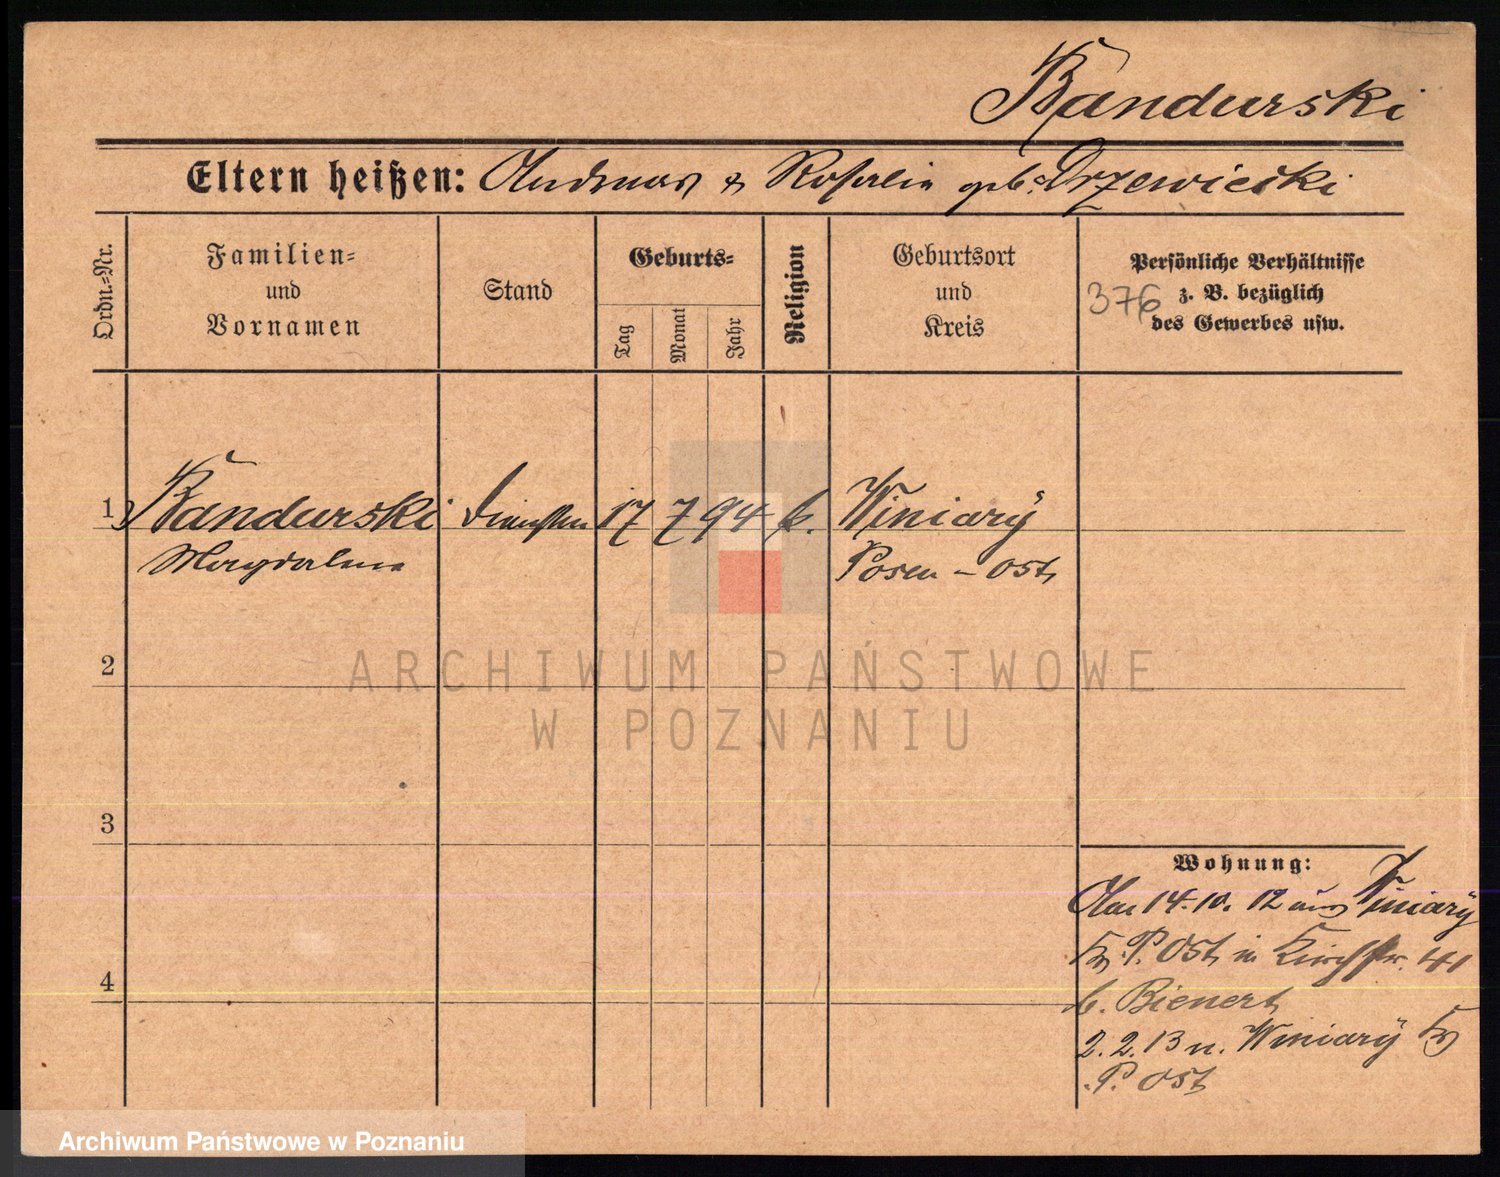 Bandurski
Eltern heißen: Andreas & Rosalie geb. Drzewiecki
Ordn.=Nr.
Familien=
und
Vornamen
Stand
Geburts=
Tag
Monat
Jahr
Religion
Geburtsort
und
Kreis
Persönliche Verhältnisse
z. B. bezüglich
des Gewerbes usw.
376
1 Bandurski 17 7 94 k. Winiary
Magdalena Posen - Ost
2
ARCHIWUM PAŃSTWOWE
W POZNANIU
3
Wohnung:
14.10.12 aus Winiary
P. Ost in Kirchstr. 41
b. Bienert
2.2.13 n. Winiary
P. Ost
4
Archiwum Państwowe w Poznaniu